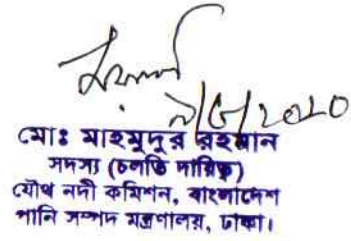 মোঃ মাহমুদুর রহমান
সদস্য (চলতি দায়িত্ব)
যৌথ নদী কমিশন, বাংলাদেশ
পানি সম্পদ মন্ত্রণালয়, ঢাকা।